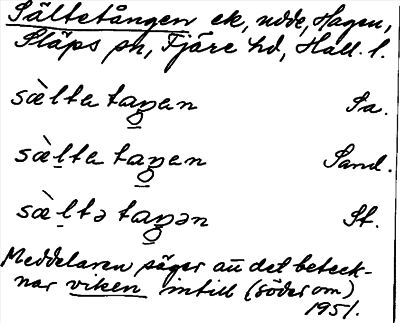 Sältetången ek, udde, Hagen,
Släps sn, Fjäre hd, Hall. l.
sæ̀lta taŋan Sa.
sæ̀lta taŋen Sand.
sæ̀ltə taŋən St.
Meddelaren säger att det beteck-
nar viken intill (söder om)
1951.